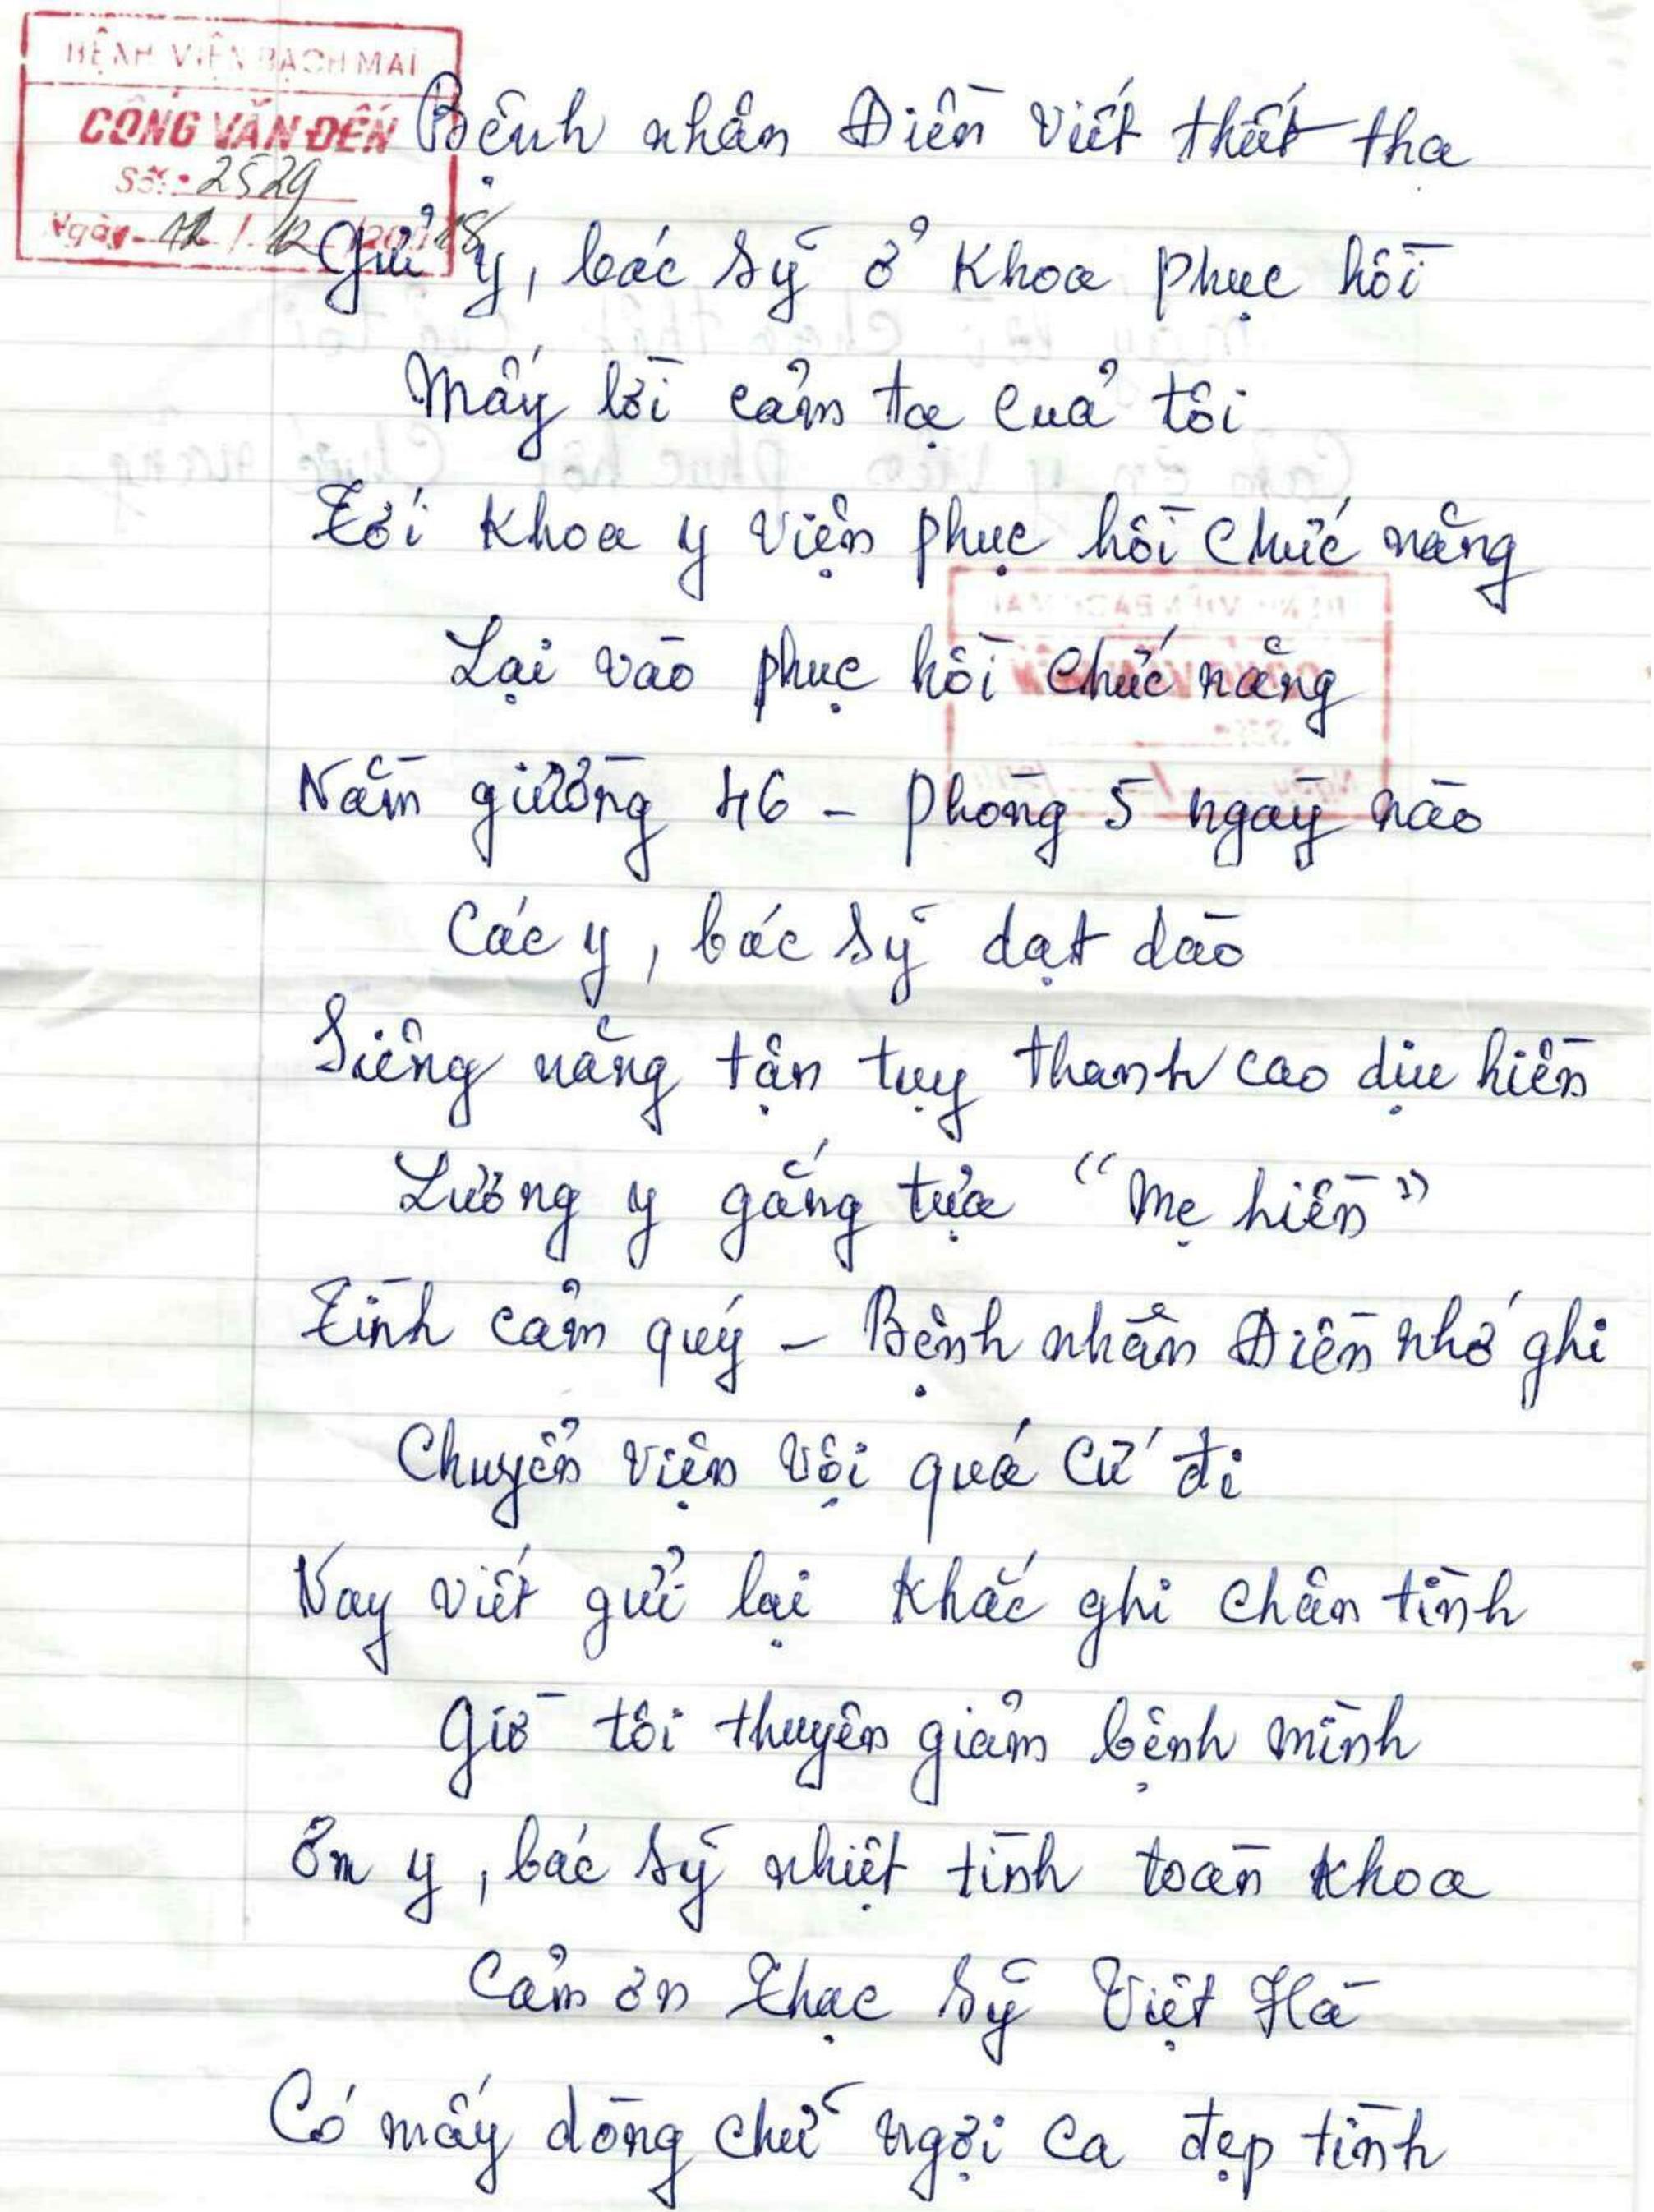 BỆNH VIỆN BẠCH MAI
CÔNG VĂN ĐẾN
Số: 2529
Ngày 12 / 12 /2018
Bệnh nhân Điền viết thiết tha
Gửi y, bác sỹ ở khoa phục hồi
Mấy lời cảm tạ của tôi
Tới khoa y viện phục hồi chức năng
Lại vào phục hồi chức năng
Nằm giường 46 - phòng 5 ngày nào
Các y, bác sỹ dạt dào
Siêng năng tận tụy thanh cao dịu hiền
Lương y gắng tựa "Mẹ hiền"
Tình cảm quý - Bệnh nhân Điền nhớ ghi
Chuyển viện vội quá cứ đi
Nay viết gửi lại khắc ghi chân tình
Giờ tôi thuyên giảm bệnh mình
Ơn y, bác sỹ nhiệt tình toàn khoa
Cảm ơn Thạc sỹ Việt Hà
Có mấy dòng chữ ngợi ca đẹp tình